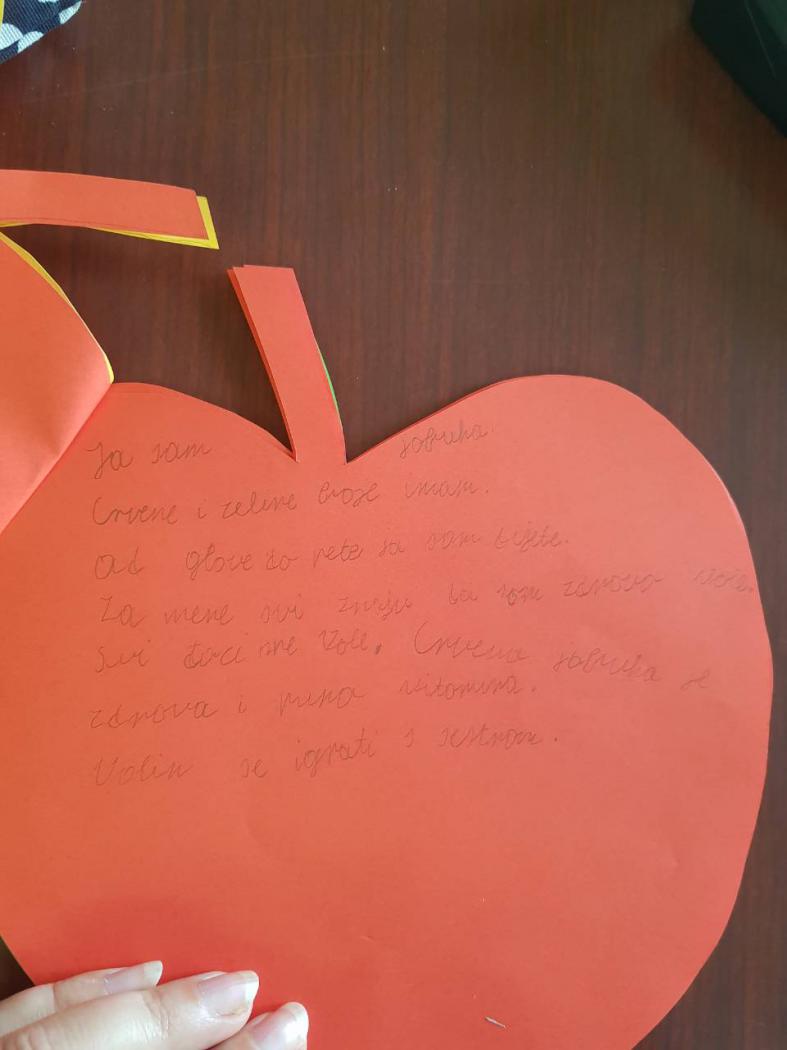 Ja sam jabuka.
Crvene i zelene boje imam.
Od glave do pete ja sam dijete.
Za mene svi znaju da sam zdravo voće.
Svi đaci me vole. Crvena jabuka je
zdrava i puna vitamina.
Volim se igrati s sestrom.